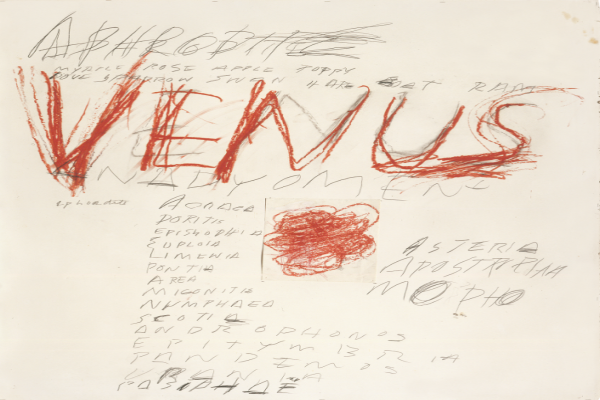 APHRODITE
MYRTLE ROSE APPLE POPPY
DOVE SPARROW SWAN HARE GOAT RAM
VENUS
ANADYOMENE
AGORAEA
DORITIS
EPISKOPHIA
EUPLOIA
LIMENIA
PONTIA
AREA
MIGONITIS
NYMPHAEA
SCOTIA
ANDROPHONOS
EPITYMBRIA
PANDEMOS
URANIA
PASIPHAE
ASTERIA
APOSTROPHIA
MORPHO